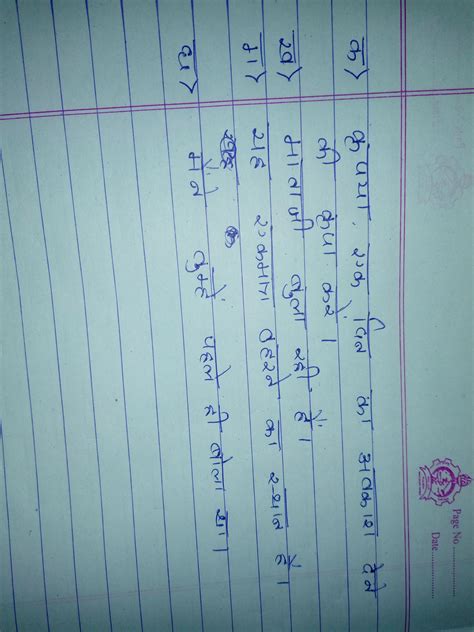 Page No
Date
क> कृपया एक दिन का अवकाश देने
की कृपा करें।
ख> माताजी बुला रही हैं।
ग> यह एकमात्र ठहरने का स्थान है।
घ> मैंने तुम्हें पहले ही बोला था।